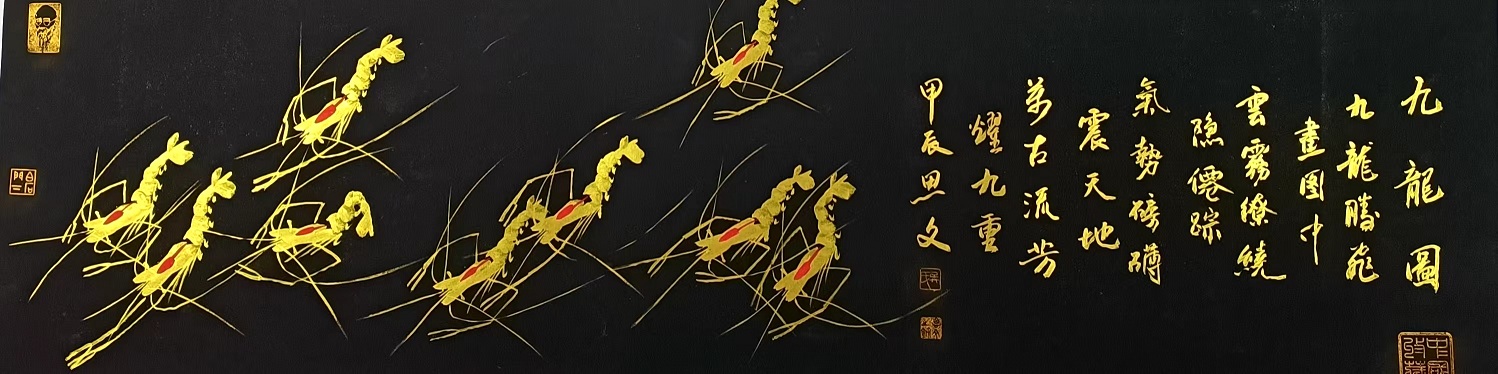 九龍圖
九龍腾飛
畫图中
雲霧繚繞
隐僊踪
氣勢磅礴
震天地
萬古流芳
耀九重
甲辰思文